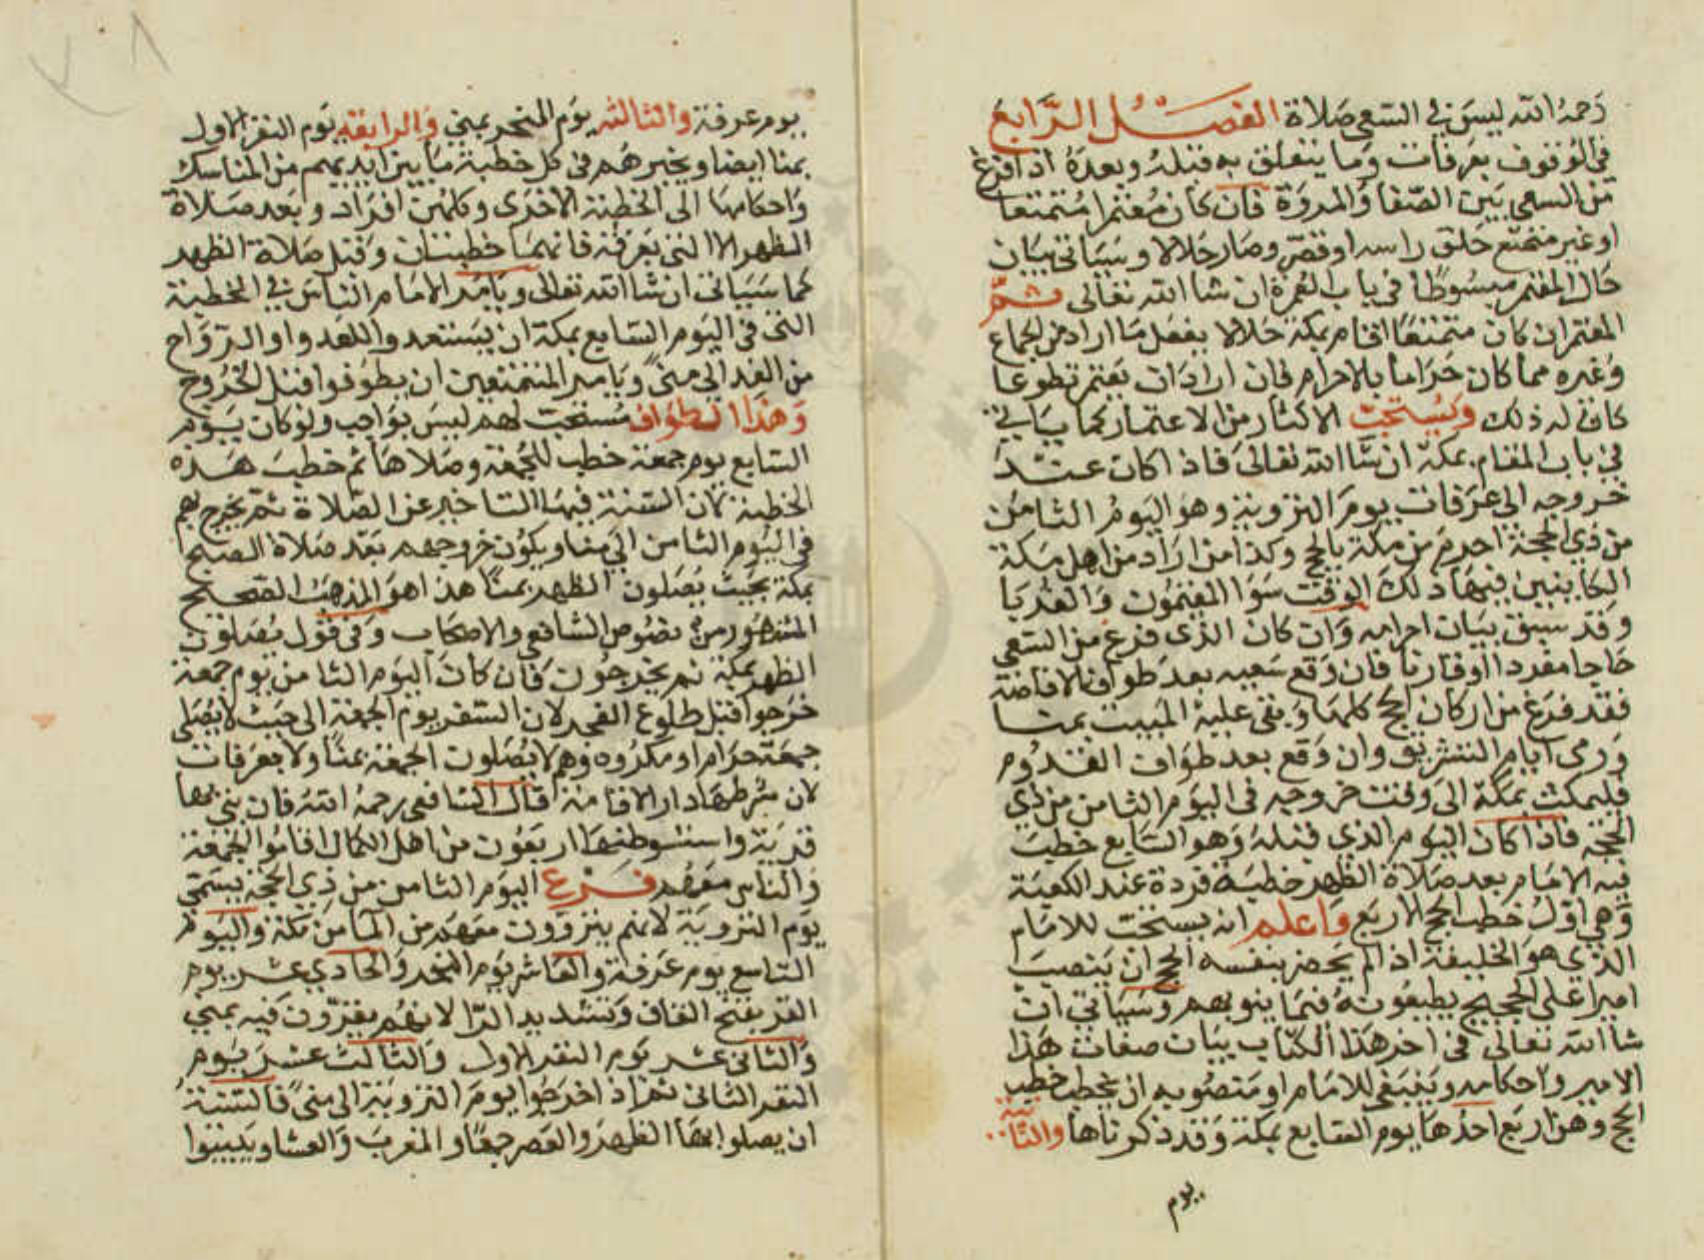 رحمه الله ليس في السعي صلاة الفصل الرابع
في الوقوف بعرفات وما يتعلق به قبله وبعده اذا فرغ
من السعي بين الصفا والمروة فان كان معتمرا متمتعا
او غير متمتع حلق راسه او قصر وصار حلالا وسياتي بيان
حال المعتمر مبسوطا في باب العمرة ان شا الله تعالى ثم
المعتمر ان كان متمتعا اقام بمكة حلالا يفعل ما اراد من الجماع
وغيره مما كان حراما بالاحرام فان اراد ان يعتمر تطوعا
كان له ذلك ويستحب الاكثار من الاعتمار كما سياتي
في باب المقام بمكة ان شا الله تعالى فاذا كان عند
خروجه الى عرفات يوم التروية وهو اليوم الثامن
من ذي الحجة احرم من مكة بالحج وكذا من اراد من اهل مكة
الكاينين فيها ذلك الوقت سوا المقيمون والغربا
وقد سبق بيان احرامه وان كان الذي فرغ من السعي
حاجا مفردا او قارنا فان وقع سعيه بعد طواف الافاضة
فقد فرغ من اركان الحج كلها وبقي عليه المبيت بمنا
ورمي ايام التشريق وان وقع بعد طواف القدوم
فليمكث بمكة الى وقت خروجه في اليوم الثامن من ذي
الحجة فاذا كان اليوم الذي قبله وهو السابع خطب
فيه الامام بعد صلاة الظهر خطبة فردة عند الكعبة
وهي اول خطب الحج الاربع واعلم انه يستحب للامام
الذي هو الخليفة اذا لم يحضر بنفسه الحج ان ينصب
اميرا على الحجيج يطيعونه فيما ينوبهم وسياتي ان
شا الله تعالى في اخر هذا الكتاب بيان صفات هذا
الامير واحكامه وينبغي للامام او منصوبه ان يخطب خطب
الحج وهن اربع احدها يوم السابع بمكة وقد ذكرناها والثانية
يوم
يوم عرفة والثالثه يوم النحر بمني والرابعه يوم النفر الاول
بمنا ايضا ويخبرهم في كل خطبة ما بين ايديهم من المناسك
واحكامها الى الخطبة الاخرى وكلهن افراد وبعد صلاة
الظهر الا التي بعرفة فانهما خطبتان وقبل صلاة الظهر
كما سياتي ان شا الله تعالى ويامر الامام الناس في الخطبة
التي في اليوم السابع بمكة ان يستعدوا للغدو او الرواح
من الغد الى منى ويامر المتمتعين ان يطوفوا قبل الخروج
وهذا الطواف مستحب لهم ليس بواجب ولو كان يوم
السابع يوم جمعة خطب للجمعة وصلاها ثم خطب هذه
الخطبة لان السنة فيها التاخير عن الصلاة ثم يخرج بهم
في اليوم الثامن الى منا ويكون خروجهم بعد صلاة الصبح
بمكة بحيث يصلون الظهر بمنا هذا هو المذهب الصحيح
المشهور من نصوص الشافعي والاصحاب وفي قول يصلون
الظهر بمكة ثم يخرجون فان كان اليوم الثامن يوم جمعة
خرجوا قبل طلوع الفجر لان السفر يوم الجمعة الى حيث لا يصلى
جمعة حرام او مكروه وهم لا يصلون الجمعة بمنا ولا بعرفات
لان شرطها دار الاقامة قال الشافعي رحمه الله فان بني بها
قرية واستوطنها اربعون من اهل الكمال اقاموا الجمعة
والناس معهم فرع اليوم الثامن من ذي الحجة يسمى
يوم التروية لانهم يتزوون معهم من الما من مكة واليوم
التاسع يوم عرفة والعاشر يوم النحر والحادي عشر يوم
القر بفتح القاف وتشديد الرا لانهم يقرون فيه بمني
والثاني عشر يوم النفر الاول والثالث عشر يوم
النفر الثاني ثم اذا خرجوا يوم التروية الى منى فالسنة
ان يصلوا بها الظهر والعصر جمعا والمغرب والعشا ويبيتوا